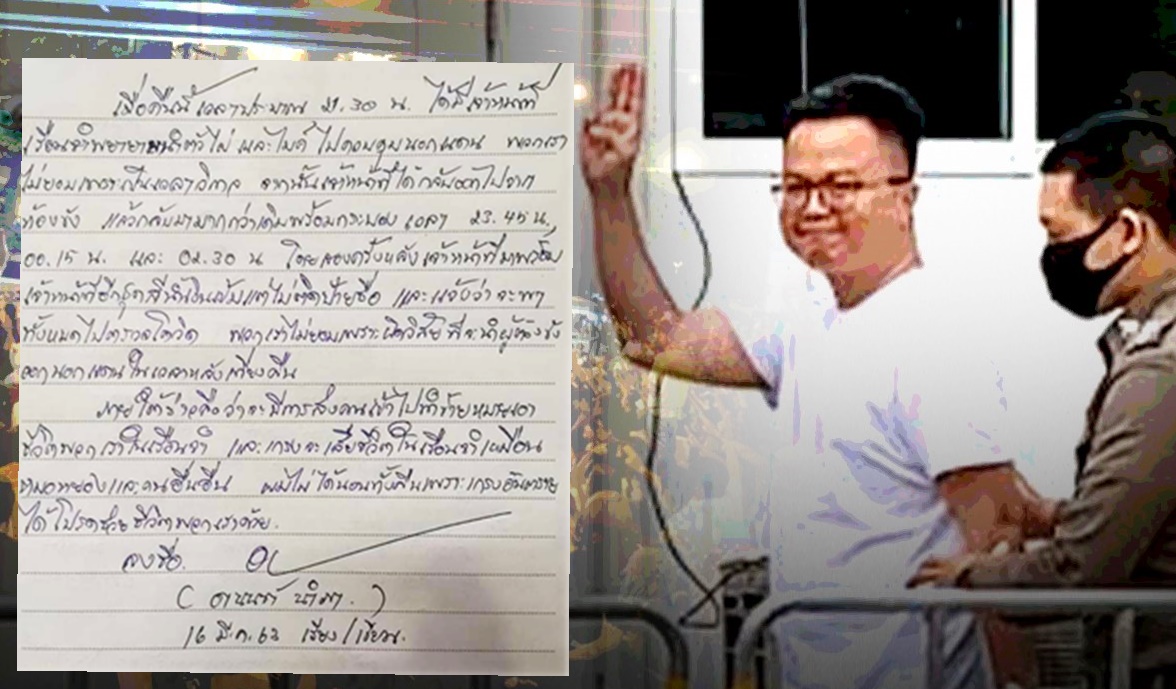 เมื่อคืนนี้ เวลาประมาณ 21.30 น. ได้มีเจ้าหน้าที่
เรือนจำพยายามนำตัวไผ่ และไมค์ ไปควบคุมนอกแดน พวกเรา
ไม่ยอมเพราะเป็นเวลาวิกาล จากนั้นเจ้าหน้าที่ได้กลับออกไปจาก
ห้องขัง แล้วกลับมามากกว่าเดิมพร้อมกระบอง เวลา 23.45 น,
00.15 น. และ 02.30 น โดยสองครั้งหลังเจ้าหน้าที่มาพร้อม
เจ้าหน้าที่อีกชุดสีน้ำเงินเข้มแต่ไม่ติดป้ายชื่อ และแจ้งว่าจะพา
ทั้งหมดไปตรวจโควิด พวกเราไม่ยอมเพราะผิดวิสัยที่จะนำผู้ต้องขัง
ออกนอกแดนในเวลาหลังเที่ยงคืน
ภายใต้ข่าวลือว่าจะมีการส่งคนเข้าไปทำร้ายหมายเอา
ชีวิตพวกเราในเรือนจำ และเกรงจะเสียชีวิตในเรือนจำเหมือน
หมอหยองและคนอื่นอื่น ผมไม่ได้นอนทั้งคืนเพราะเกรงอันตราย
ได้โปรดช่วยชีวิตพวกเราด้วย.
ลงชื่อ.
( อานนท์ นำภา. )
16 มี.ค. 64 เรียง/เขียน.